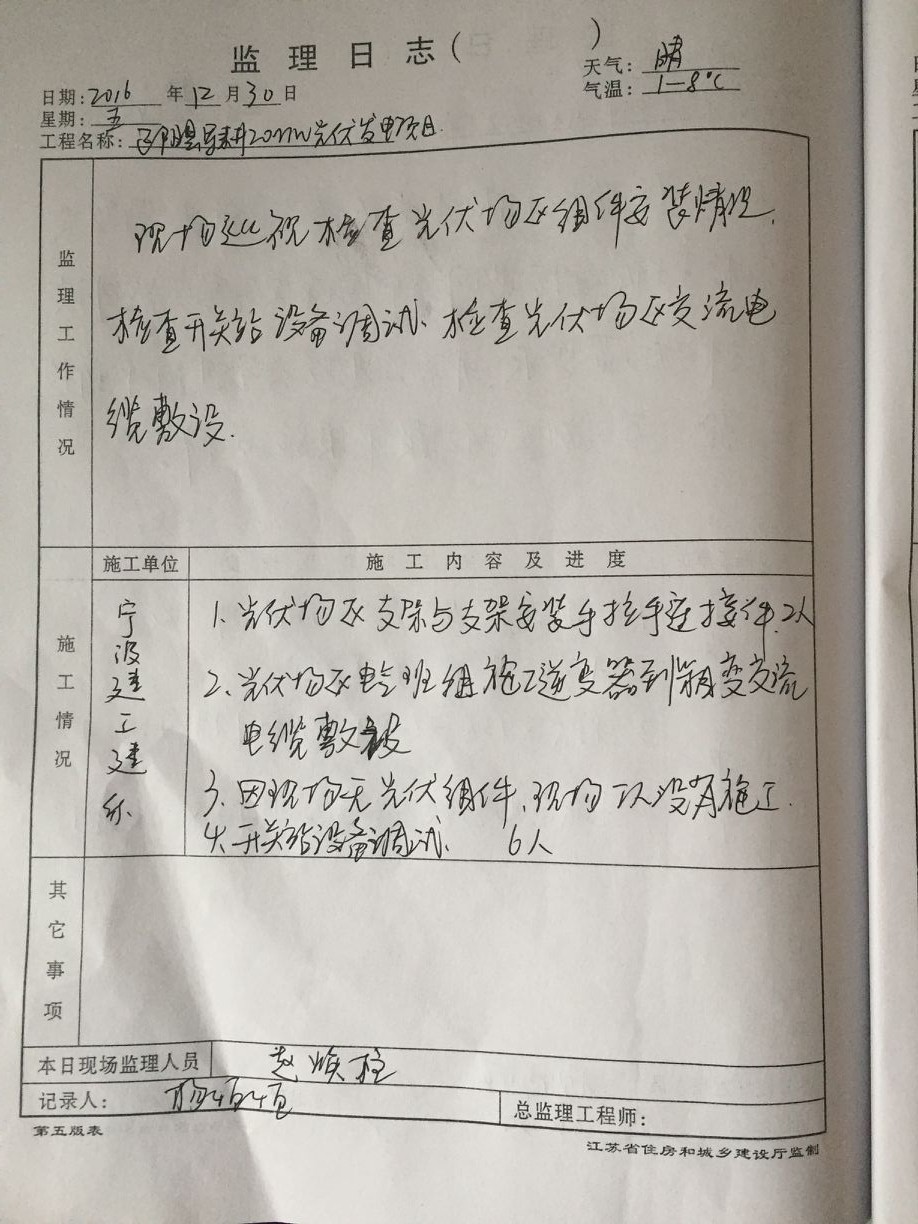 监理日志( )
天气: 晴
日期: 2016 年 12 月 30 日
气温: 1-8℃
星期: 五
工程名称: 20MW光伏发电项目
监理工作情况
现场巡视检查光伏场区组件安装情况.
检查开关站设备调试、检查光伏场区交流电
缆敷设.
施工情况
施工单位
施工内容及进度
宁波建工建
1.光伏场区支架与支架安装手拉手连接件.2人
2、光伏场区电气班组施工逆变器到箱变交流
电缆敷设
3、因现场无光伏组件,现场 没有施工.
4、开关站设备调试、 6人
其它事项
本日现场监理人员 赵焕柱
记录人: 杨
总监理工程师:
第五版表
江苏省住房和城乡建设厅监制